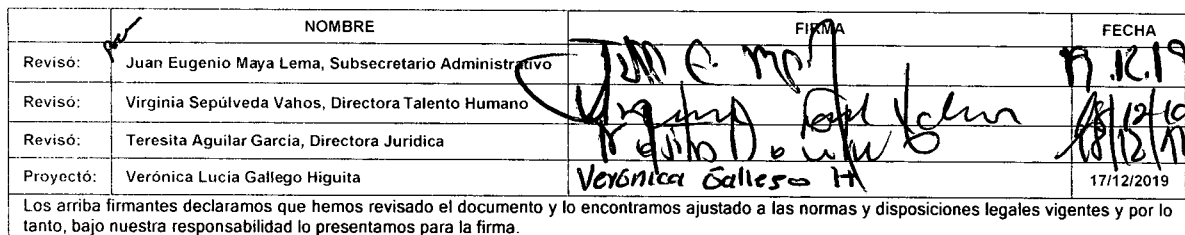 NOMBRE FIRMA FECHA
Revisó: Juan Eugenio Maya Lema, Subsecretario Administrativo
Revisó: Virginia Sepúlveda Vahos, Directora Talento Humano 18/12/19
Revisó: Teresita Aguilar García, Directora Jurídica 18/12/19
Proyectó: Verónica Lucía Gallego Higuita Verónica Gallego H 17/12/2019
Los arriba firmantes declaramos que hemos revisado el documento y lo encontramos ajustado a las normas y disposiciones legales vigentes y por lo
tanto, bajo nuestra responsabilidad lo presentamos para la firma.